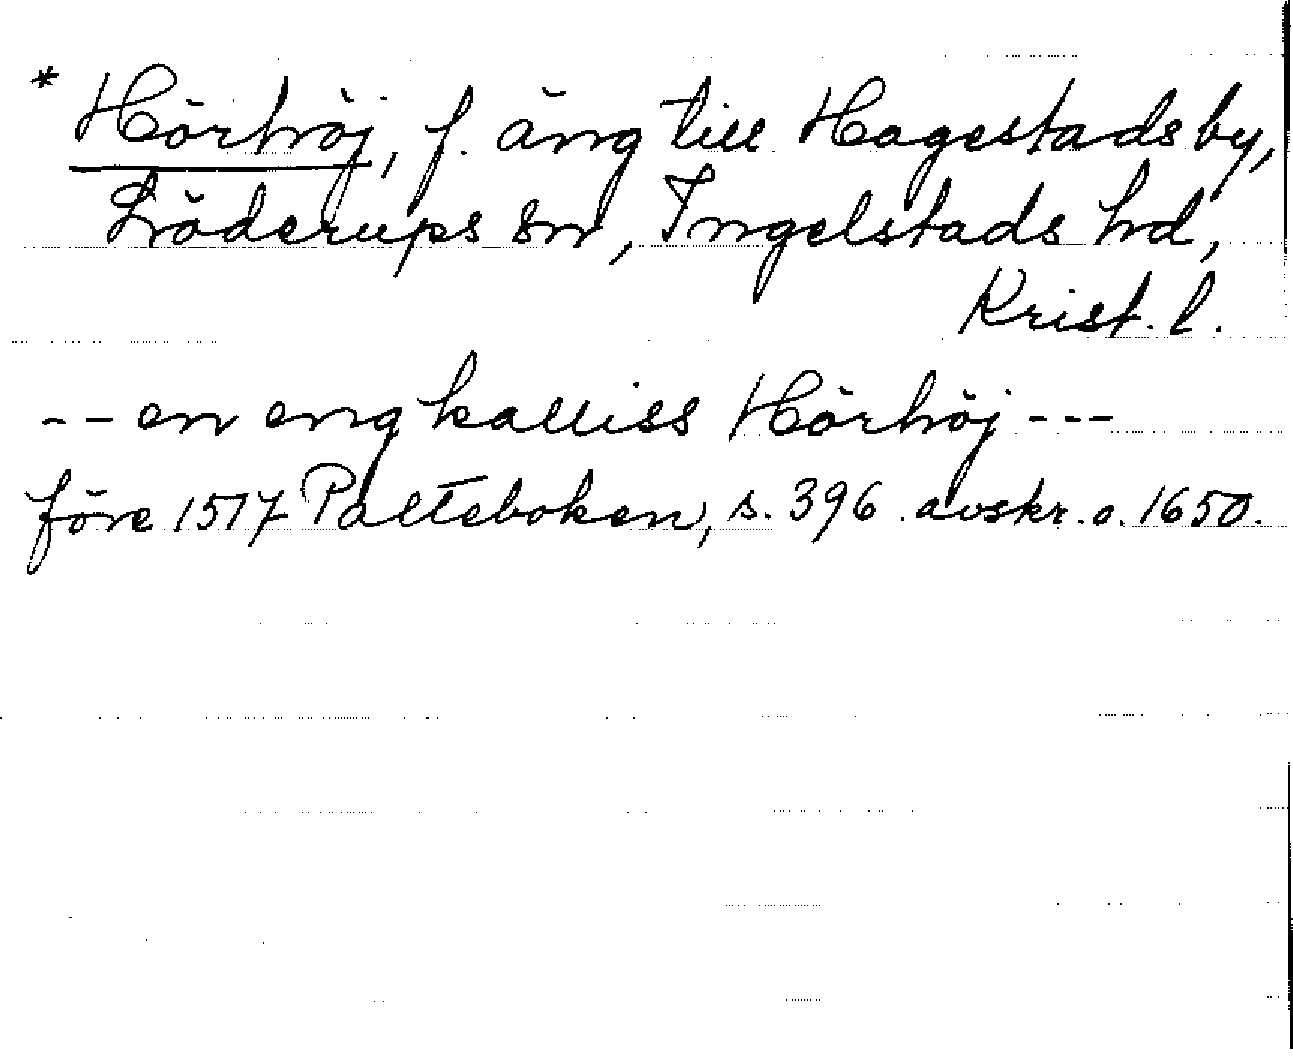 * Hörhöj, f. äng till Hagestads by,
Löderups sn, Ingelstads hd,
Krist. l.
-- en eng kalliss Hörhöj ---
före 1517 Palteboken, s. 396 avskr. o. 1650.